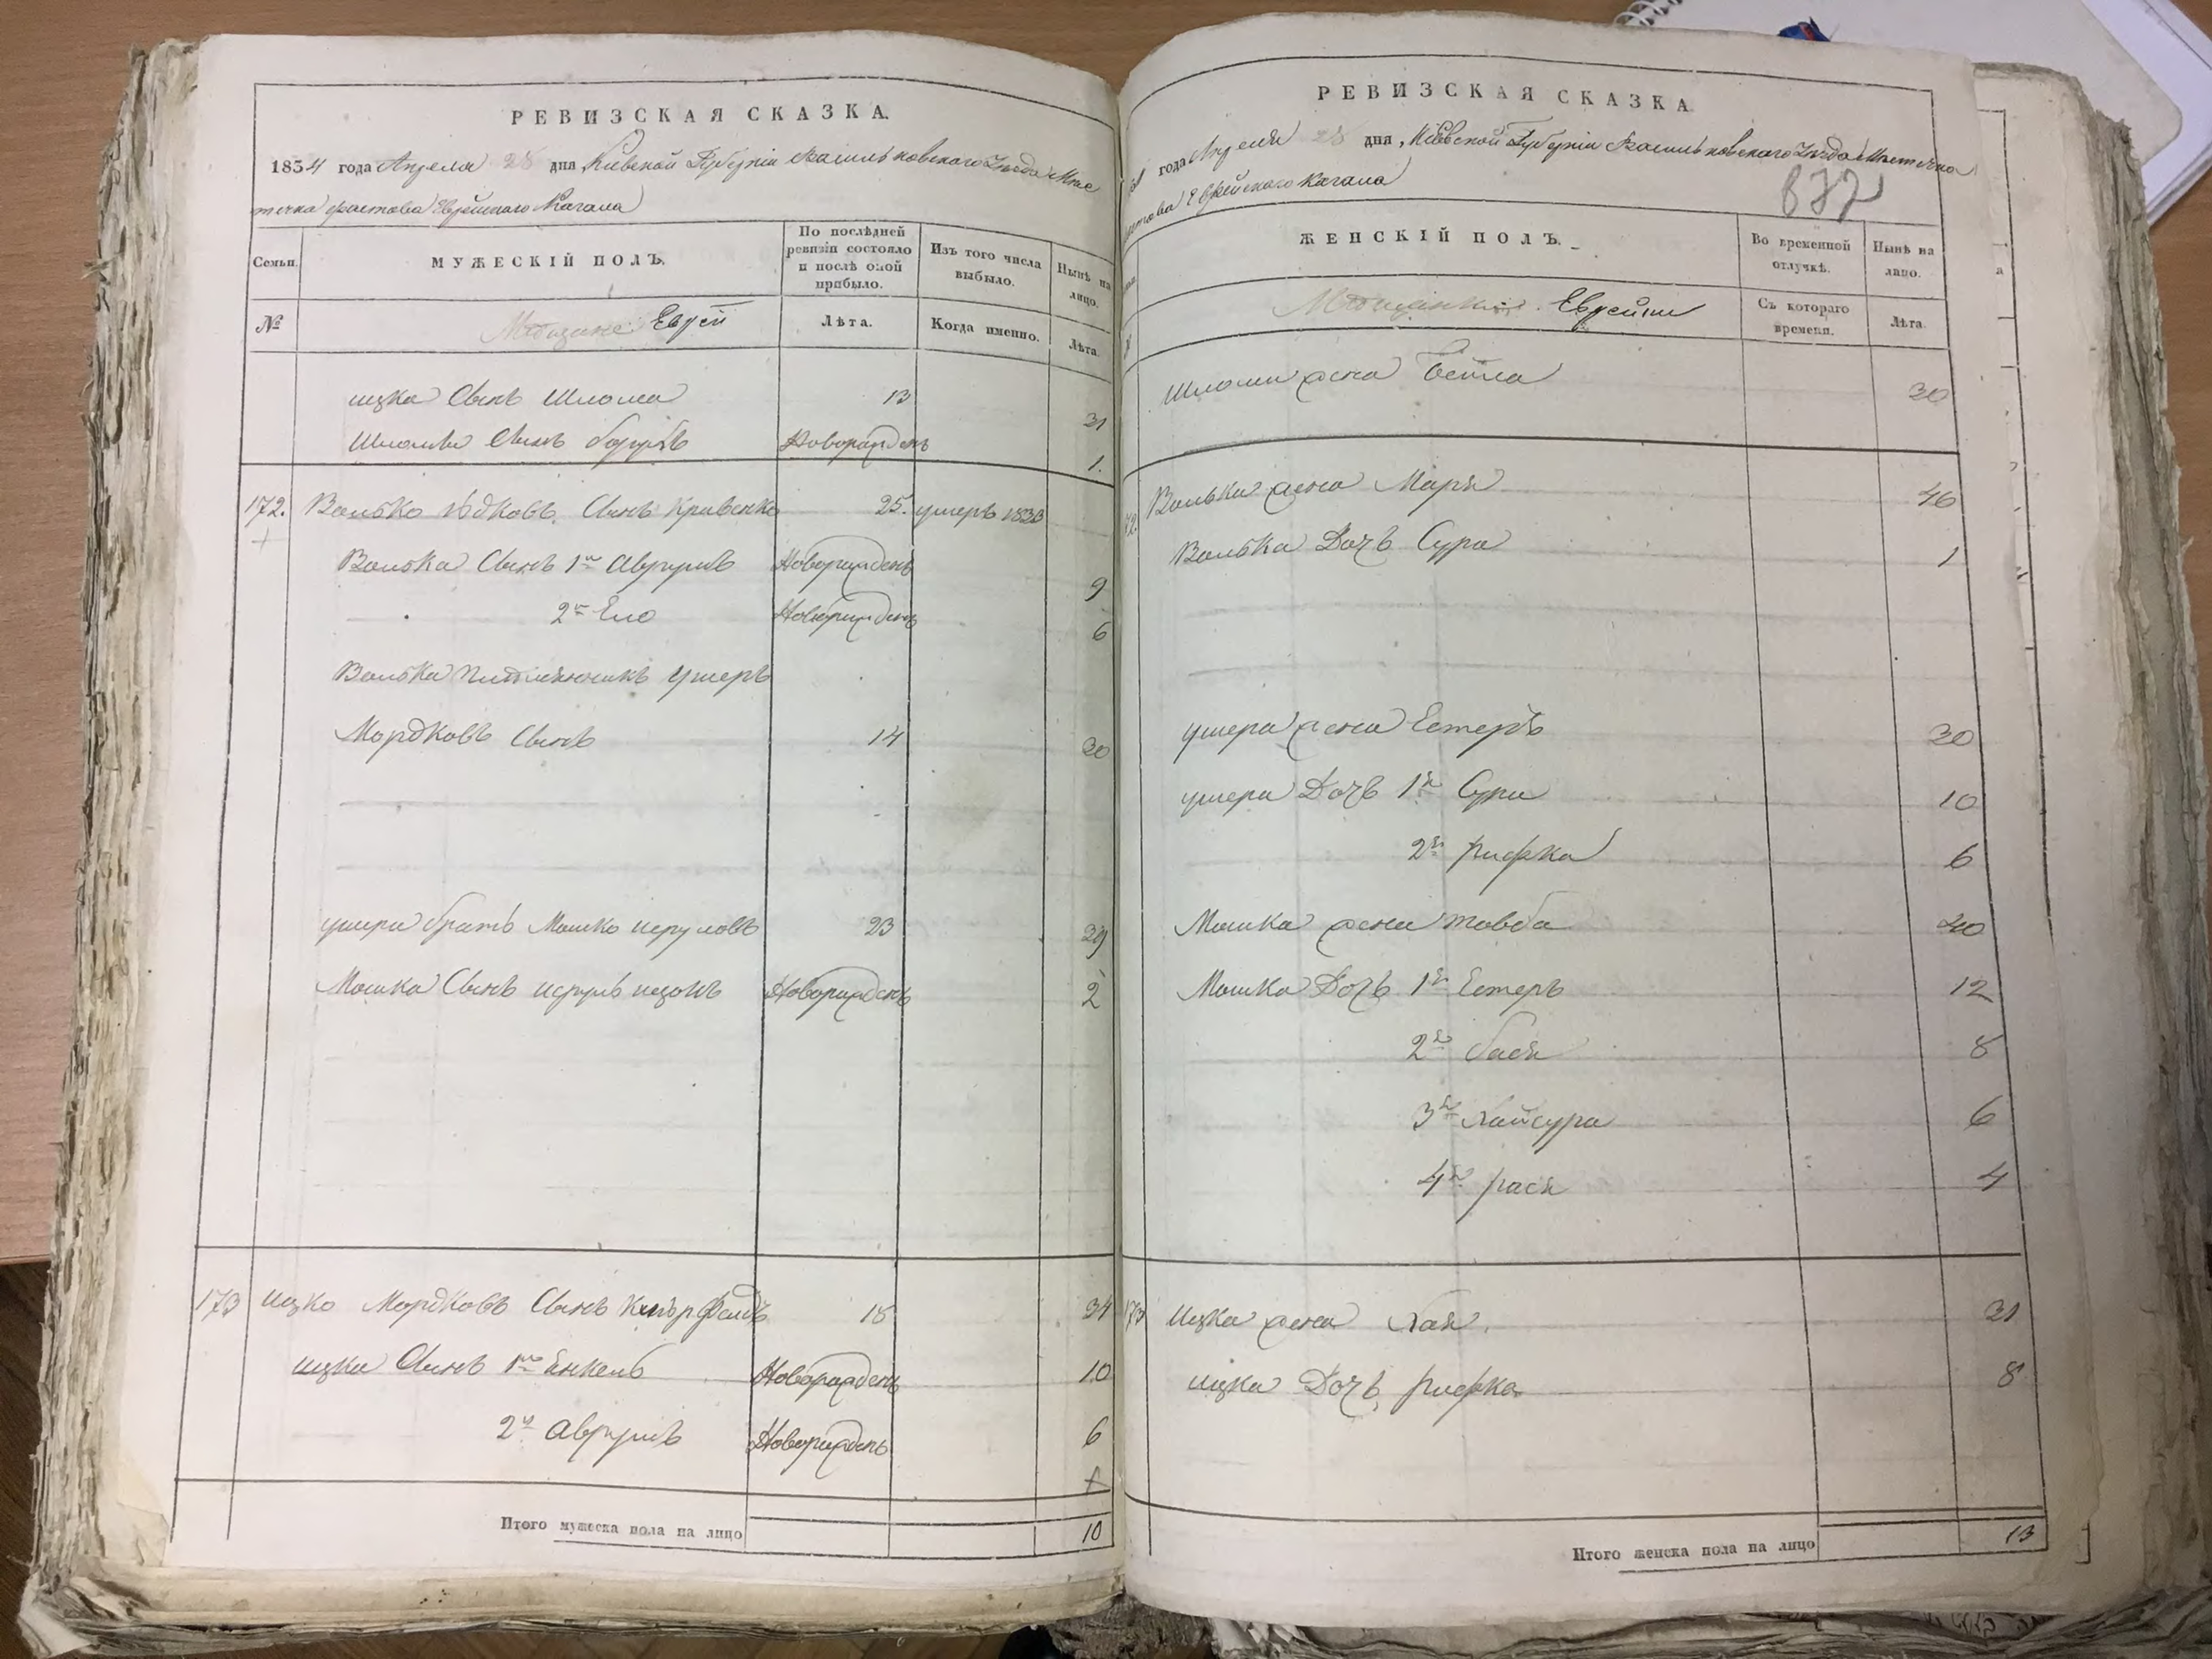 РЕВИЗСКАЯ СКАЗКА.
1834 года Апреля 28 дня, Киевской Губернiи Васильковскаго Уезда Мѣс
течка Фастова Еврейскаго Кагала
Семьи.
МУЖЕСКIЙ ПОЛЪ.
По послѣдней ревизiи состояло и послѣ оной прибыло.
Изъ того числа выбыло.
Нынѣ на лицо.
№
Мещане Еврей
Лѣта.
Когда именно.
Лѣта.
ицка Сынъ Шлома 13 31
Шломы Сынъ Новорожденъ 1.
172. Волько Сынъ Кривенко 25. умеръ 1833
Волька Сынъ 1й Аврумъ Новорожденъ 9
2й Ело Новорожденъ 6
Волька племянникъ Ушеръ
Мордковъ Сынъ 14 30
ушера братъ Мошко 23 39
Мошка Сынъ Новорожденъ 2
173 ицко Мордковъ Сынъ 18 34
ицка Сынъ 1й Енкель Новорожденъ 10
2й Аврумъ Новорожденъ 6
Итого мужеска пола на лицо 10
РЕВИЗСКАЯ СКАЗКА.
года Апреля 28 дня, Киевской Губернiи Васильковскаго Уезда Местечка
Еврейскаго Кагала
872
ЖЕНСКIЙ ПОЛЪ.
Во временной отлучкѣ.
Нынѣ на лицо.
Мещанки Еврейки
Съ котораго времени.
Лѣта.
Шломы жена Бейла 30
Волька жена Маря 40
Волька Дочь Сура 1
ушера жена Естеръ 30
ушера Дочь 1я Сура 10
2я рифка 6
Мошка жена товба 40
Мошка Дочь 1я Естеръ 12
2я бася 8
3я хайсура 6
4я рася 4
173 Ицка жена Хая. 31
ицка Дочь рифка 8
Итого женска пола на лицо 13